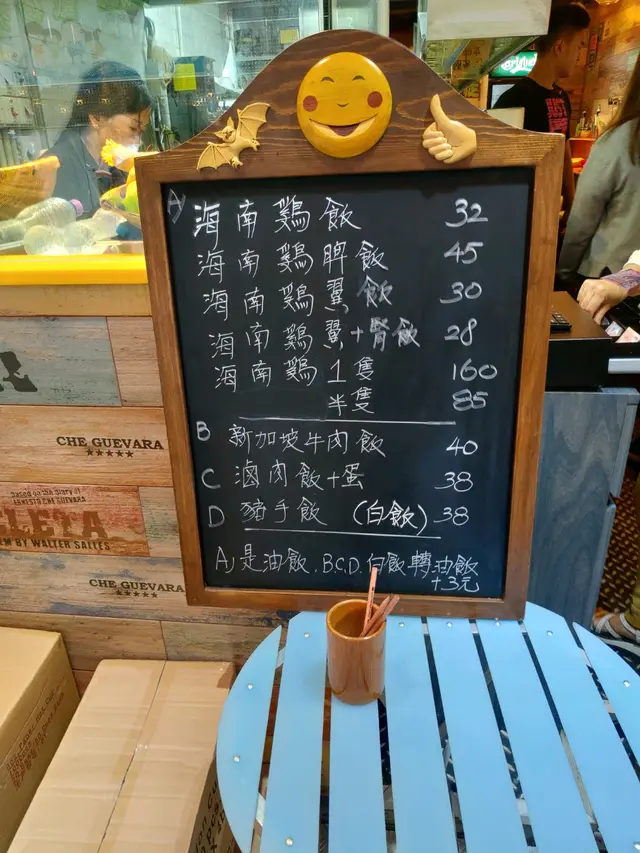 A) 海南鷄飯 32
海南鷄髀飯 45
海南鷄翼飯 30
海南鷄翼+腎飯 28
海南鷄1隻 160
半隻 85
B 新加坡牛肉飯 40
C 滷肉飯+蛋 38
D 豬手飯 (白飯) 38
A) 是油飯. B.C.D. 白飯轉油飯
+3元
CHE GUEVARA
Based on the diary of
ERNESTO CHE GUEVARA
LETA
M BY WALTER SALLES
CHE GUEVARA
Carlsberg